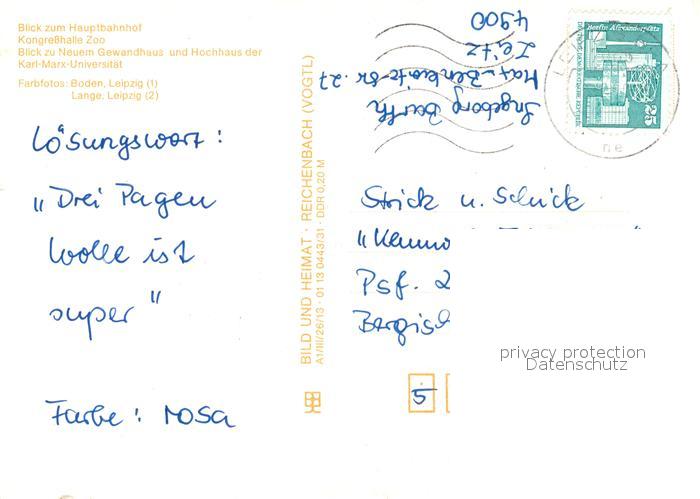 Blick zum Hauptbahnhof
Kongreßhalle Zoo
Blick zu Neuem Gewandhaus und Hochhaus der
Karl-Marx-Universität
Farbfotos: Boden, Leipzig (1)
Lange, Leipzig (2)
Lösungswort:
„Drei Pagen
Wolle ist
super"
Farbe: rosa
BILD UND HEIMAT · REICHENBACH (VOGTL)
A1/III/26/13 · 01 13 0443/31 · DDR 0,20 M
Ingeborg
4900 Zeitz
Berlin Alexanderplatz
25
ne
Strick u. Schick
Psf. 2
5
privacy protection
Datenschutz